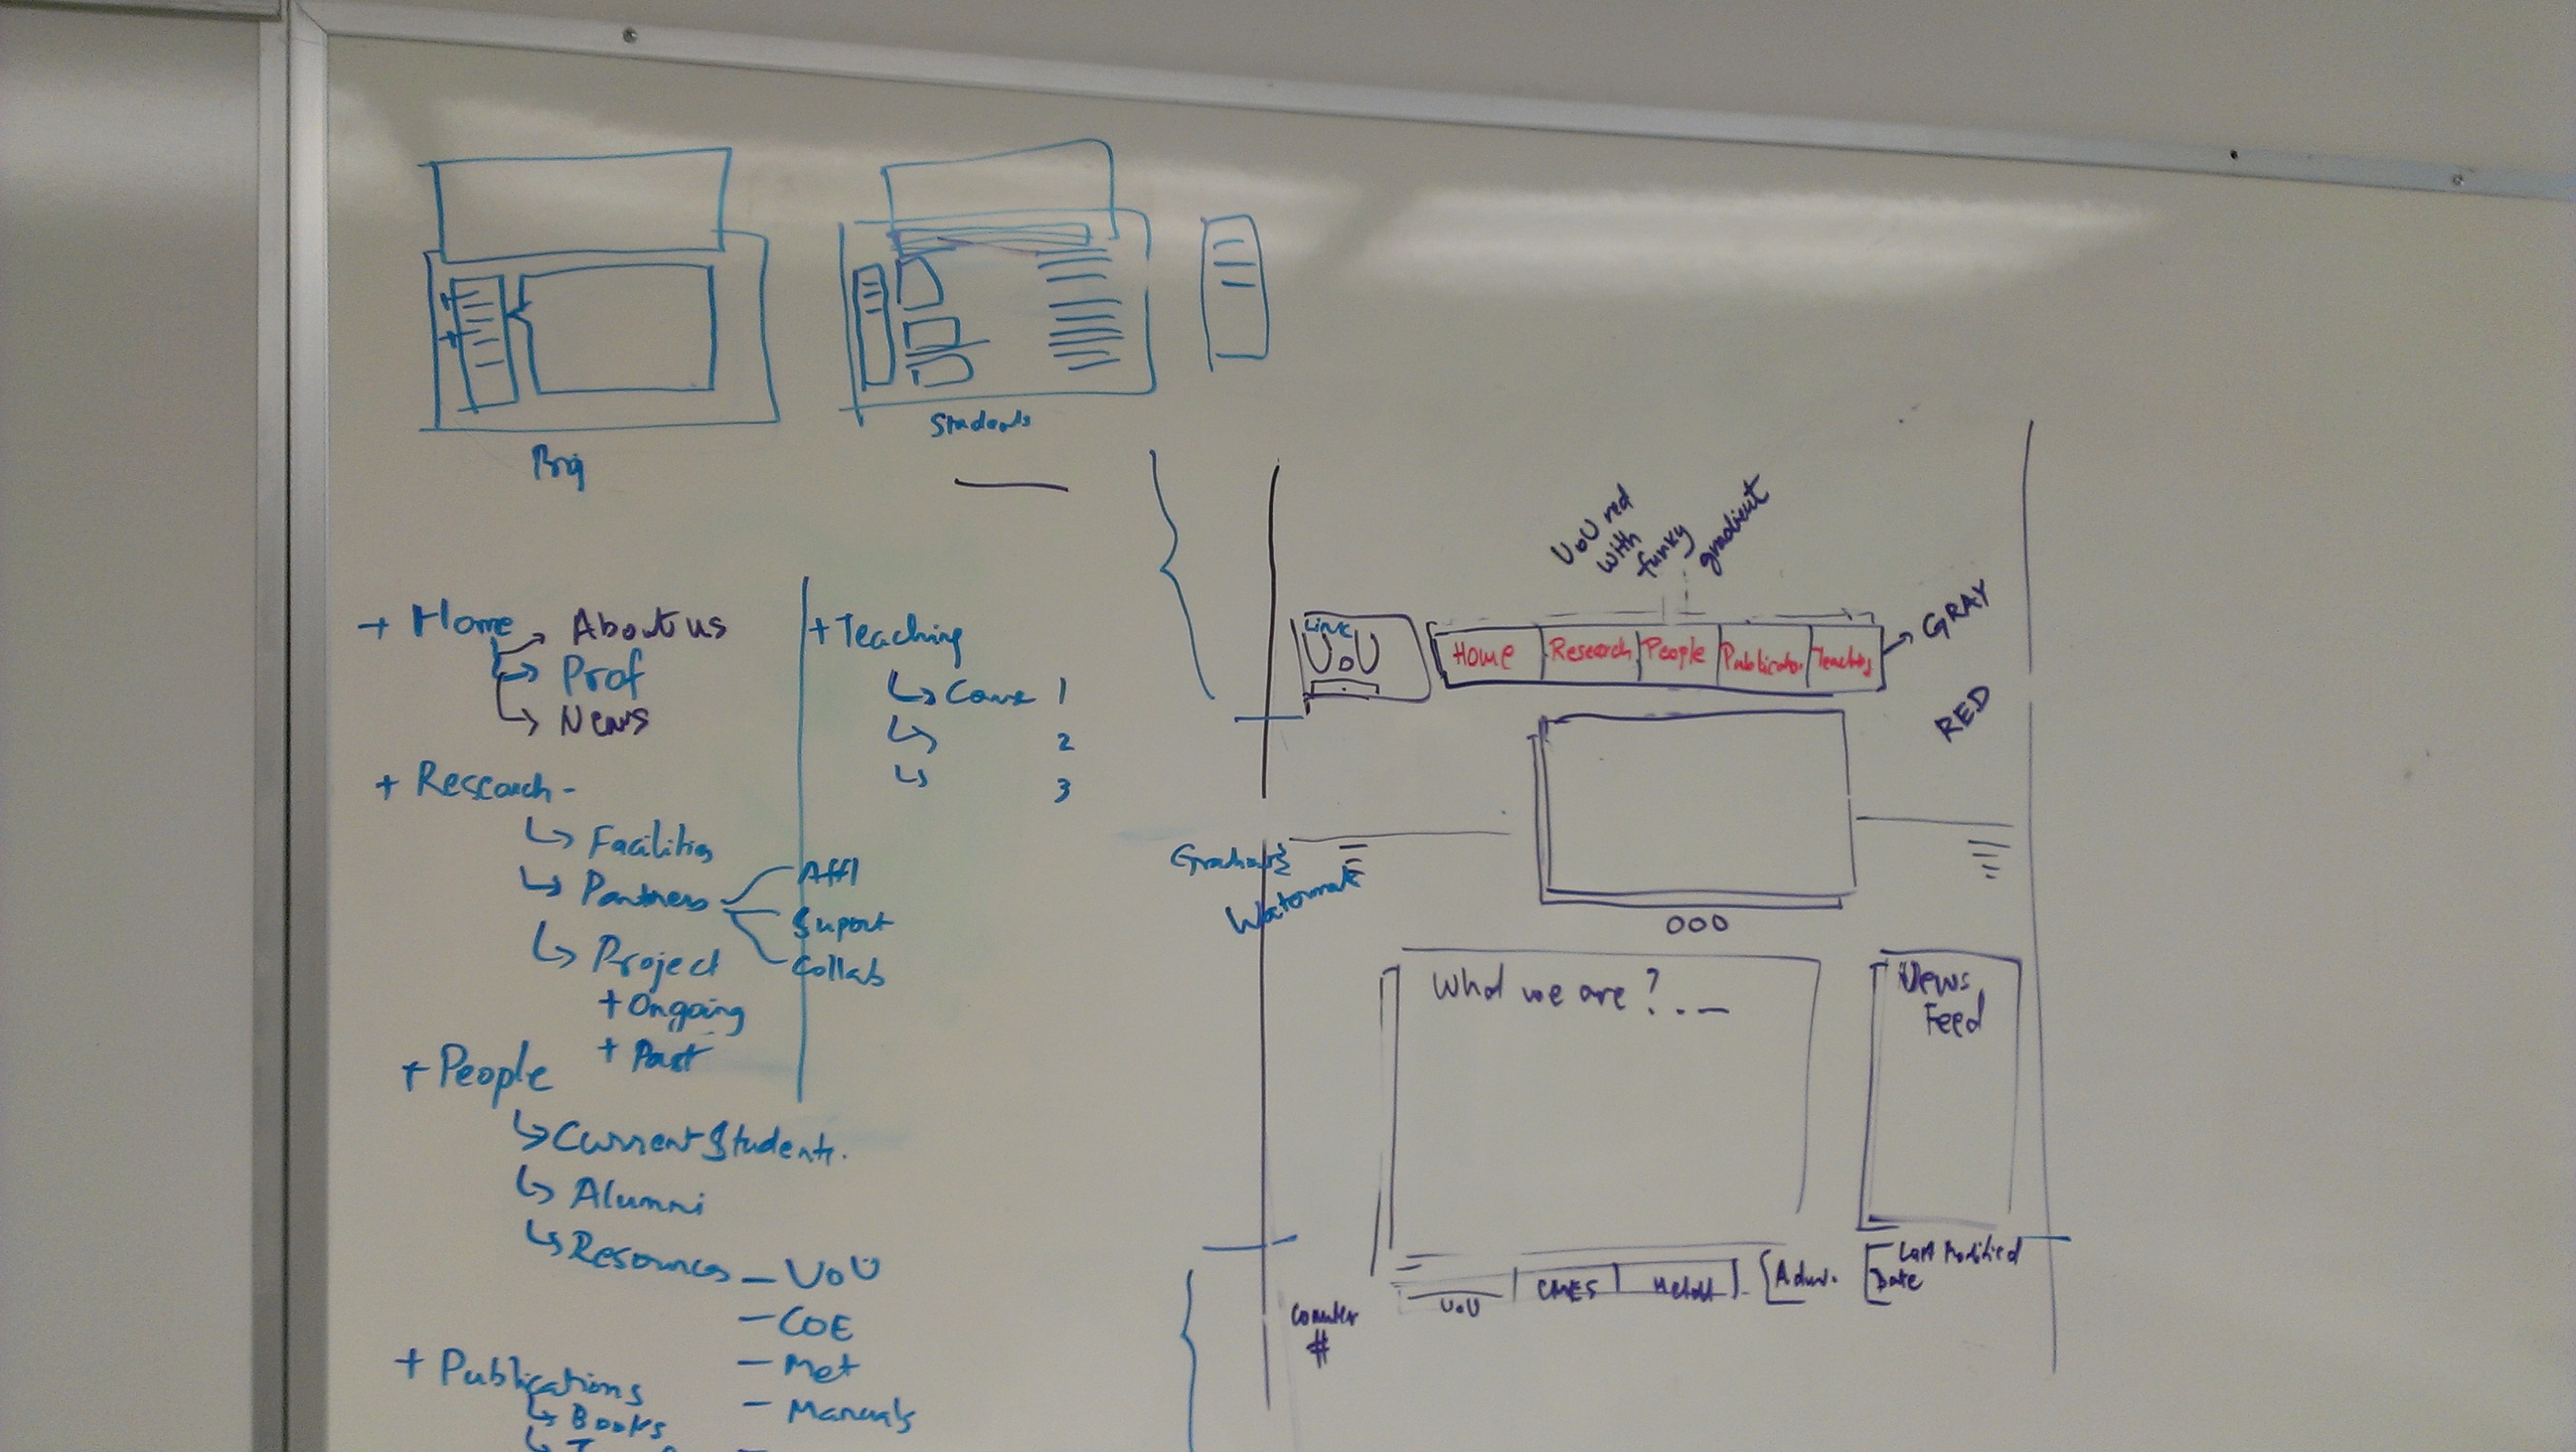 Proj
Students
+ Home
About us
Prof
News
+ Research -
Facilities
Partners
Affl
Suport
Collab
Project
+ Ongoing
+ Past
+ People
Current Students.
Alumni
Resources
- UoU
- COE
- Met
- Manuals
+ Publications
Books
+ Teaching
Course 1
2
3
UoU red
with
funky
gradient
Link
UoU
Home
Research
People
Publication
Teaching
GRAY
RED
Watermark
What we are? . . —
News
Feed
UoU
CMES
Adm.
Last Modified
Date
Counter
#